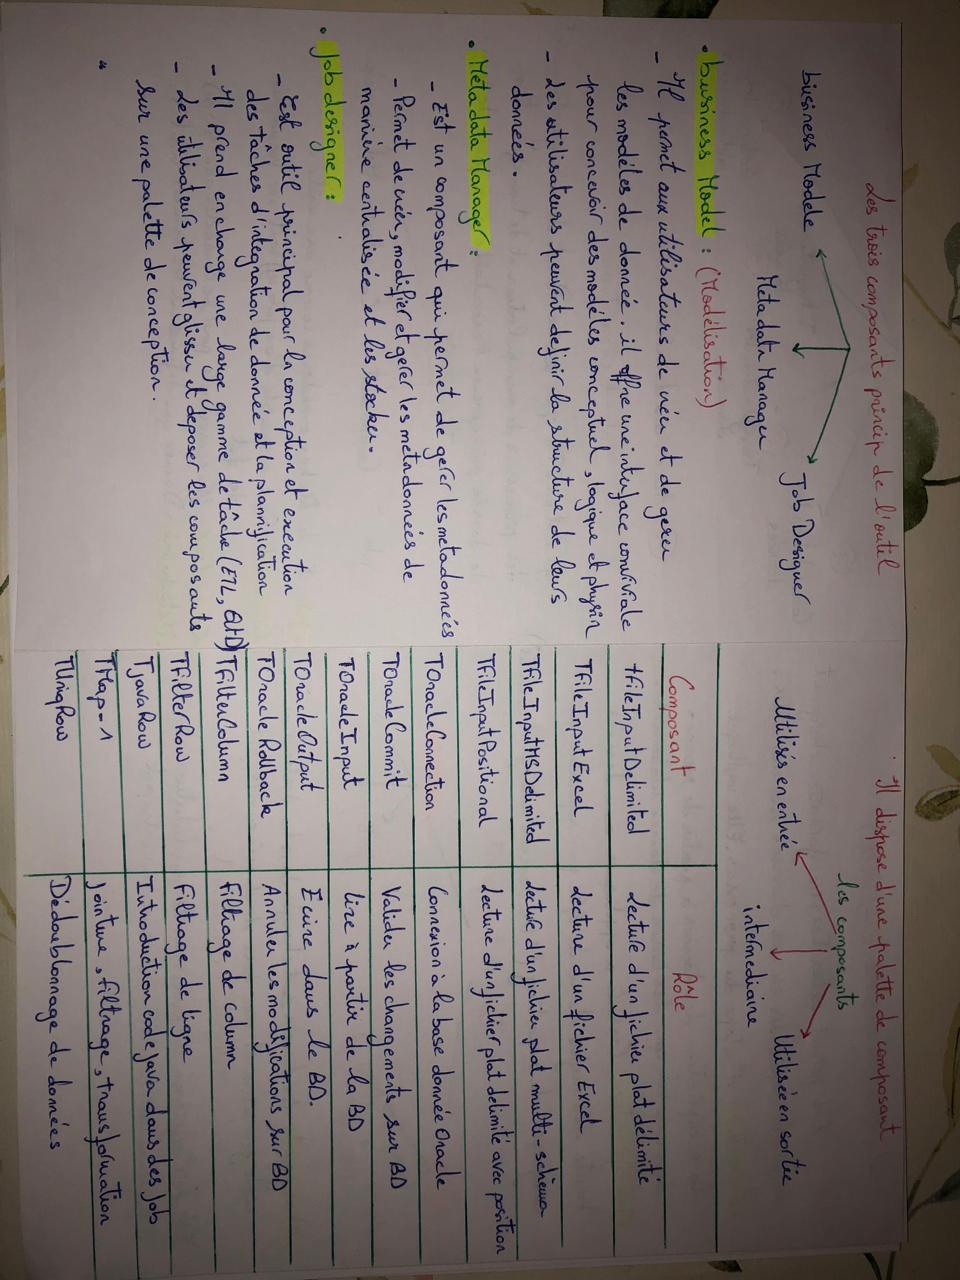 Les trois composants princip de l'outil
business Modele
Metadata Manager
Job Designer
• business Model : (Modélisation)
- Il permet aux utilisateurs de créer et de gerer
les modéles de donnée. il offre une interface conviviale
pour concevoir des modéles conceptuel, logique et
- Les utilisateurs peuvent definir la structure de leurs
données.
• Méta data Manager :
- Est un composant qui permet de gerer les metadonnées
- Permet de créer, modifier et gerer les metadonnées de
manière centralisée et les stocker.
• Job designer :
- Est outil principal pour la conception et execution
des tâches d'integration de donnée et la plannification
- Il prend en charge une large gamme de tâche (ETL,
- Les utilisateurs peuvent glisser et deposer les composants
sur une palette de conception.
Il dispose d'une palette de composant
les composants
Utilisés en entrée
intermediaire
Utilisée en sortie
Composant Rôle
tfileInputDelimited Lecture d'un fichier plat délimité
TfileInputExcel Lecture d'un fichier Excel
TfileInputMSDelimited Lecture d'un fichier plat multi-schèma
TfileInputPositional Lecture d'un fichier plat delimité avec position
TOracleConnection Connexion à la base donnée Oracle
TOracleCommit Valider les changements sur BD
TOracleInput lire à partir de la BD
TOracleOutput Ecrire dans le BD.
TOracle Rollback Annuler les modifications sur BD
TFilterColumn Filtrage de column
TFilterRow Filtrage de ligne
TjavaRow Introduction code java dans des Job
TMap-1 jointure, filtrage, transformation
TUniqRow Dédoublonnage de données